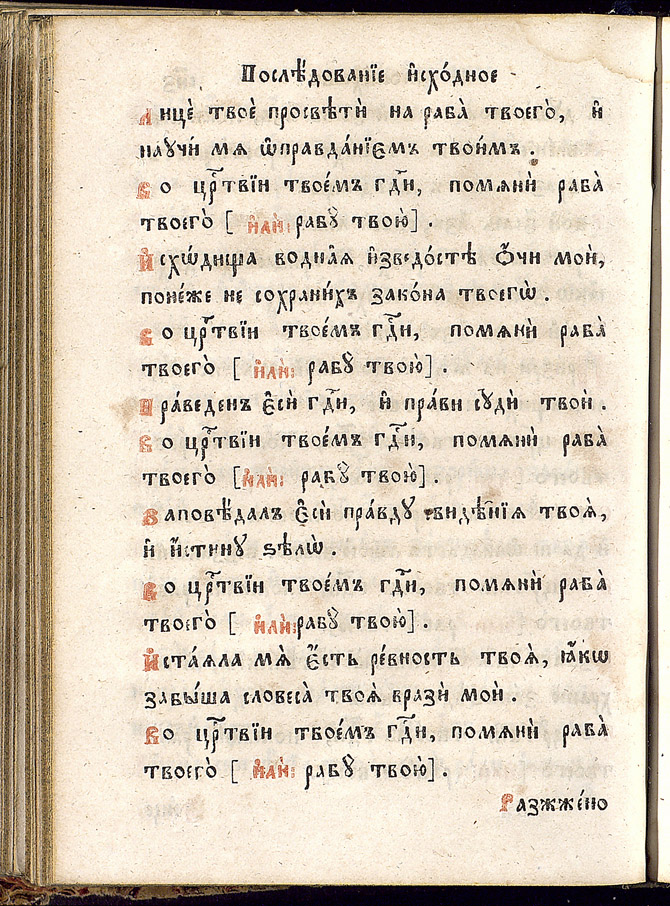 Послѣ́дованїе и҆схо́дное
Лицѐ твоѐ просвѣтѝ на раба̀ твоего̀, и҆
научѝ мѧ ѡ҆правда́нїємъ твои́мъ .
Во црⷭ҇твїи твое́мъ гдⷭ҇и, помѧнѝ раба̀
твоего̀ [ и҆лѝ: рабꙋ̀ твою̀] .
И҆схѡ́дища водна́ѧ и҆зведо́стѣ ѻ҆́чи моѝ,
поне́же не сохрани́хъ зако́на твоегѡ̀ .
Во црⷭ҇твїи твое́мъ гдⷭ҇и, помѧнѝ раба̀
твоего̀ [ и҆лѝ: рабꙋ̀ твою̀] .
Пра́веденъ є҆сѝ гдⷭ҇и, и҆ пра́ви сꙋдѝ твоѝ .
Во црⷭ҇твїи твое́мъ гдⷭ҇и, помѧнѝ раба̀
твоего̀ [и҆лѝ: рабꙋ̀ твою̀] .
Заповѣ́далъ є҆сѝ пра́вдꙋ свидѣ̑нїѧ твоѧ̑,
и҆ и҆́стинꙋ ѕѣлѡ̀ .
Во црⷭ҇твїи твое́мъ гдⷭ҇и, помѧнѝ раба̀
твоего̀ [ и҆лѝ: рабꙋ̀ твою̀] .
И҆ста́ѧла мѧ̀ є҆́сть ре́вность твоѧ̀, ꙗ҆́кѡ
забы́ша словеса̀ твоѧ̑ вразѝ моѝ .
Во црⷭ҇твїи твое́мъ гдⷭ҇и, помѧнѝ раба̀
твоего̀ [ и҆лѝ: рабꙋ̀ твою̀] .
Разжже́но